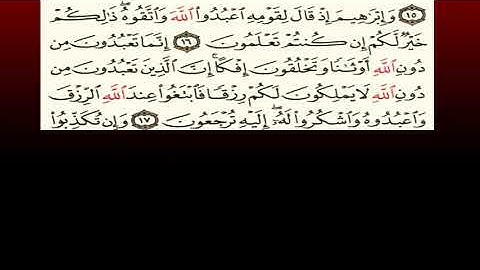 ١٥ وَإِبْرَٰهِيمَ إِذْ قَالَ لِقَوْمِهِ ٱعْبُدُوا۟ ٱللَّهَ وَٱتَّقُوهُ ۖ ذَٰلِكُمْ
خَيْرٌ لَّكُمْ إِن كُنتُمْ تَعْلَمُونَ ١٦ إِنَّمَا تَعْبُدُونَ مِن
دُونِ ٱللَّهِ أَوْثَٰنًا وَتَخْلُقُونَ إِفْكًا ۚ إِنَّ ٱلَّذِينَ تَعْبُدُونَ مِن
دُونِ ٱللَّهِ لَا يَمْلِكُونَ لَكُمْ رِزْقًا فَٱبْتَغُوا۟ عِندَ ٱللَّهِ ٱلرِّزْقَ
وَٱعْبُدُوهُ وَٱشْكُرُوا۟ لَهُۥٓ ۖ إِلَيْهِ تُرْجَعُونَ ١٧ وَإِن تُكَذِّبُوا۟